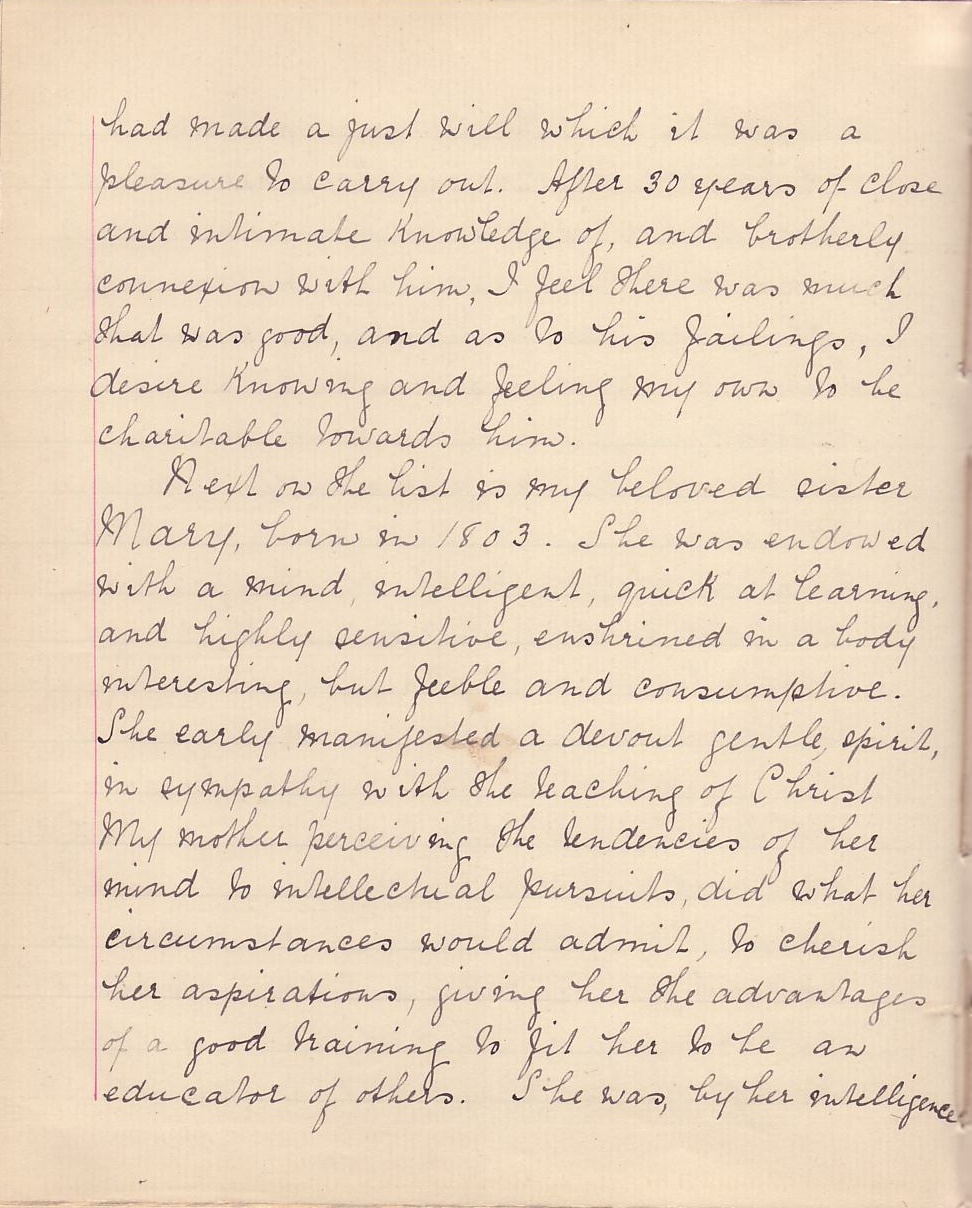 had made a just will which it was a
pleasure to carry out. After 30 years of close
and intimate knowledge of, and brotherly
connexion with him, I feel there was much
that was good, and as to his failings, I
desire knowing and feeling my own to be
charitable towards him.
Next on the list is my beloved sister
Mary, born in 1803. She was endowed
with a mind, intelligent, quick at learning,
and highly sensitive, enshrined in a body
interesting, but feeble and consumptive.
She early manifested a devout gentle, spirit,
in sympathy with the teaching of Christ
My mother perceiving the tendencies of her
mind to intellectual pursuits, did what her
circumstances would admit, to cherish
her aspirations, giving her the advantages
of a good training to fit her to be an
educator of others. She was, by her intelligence